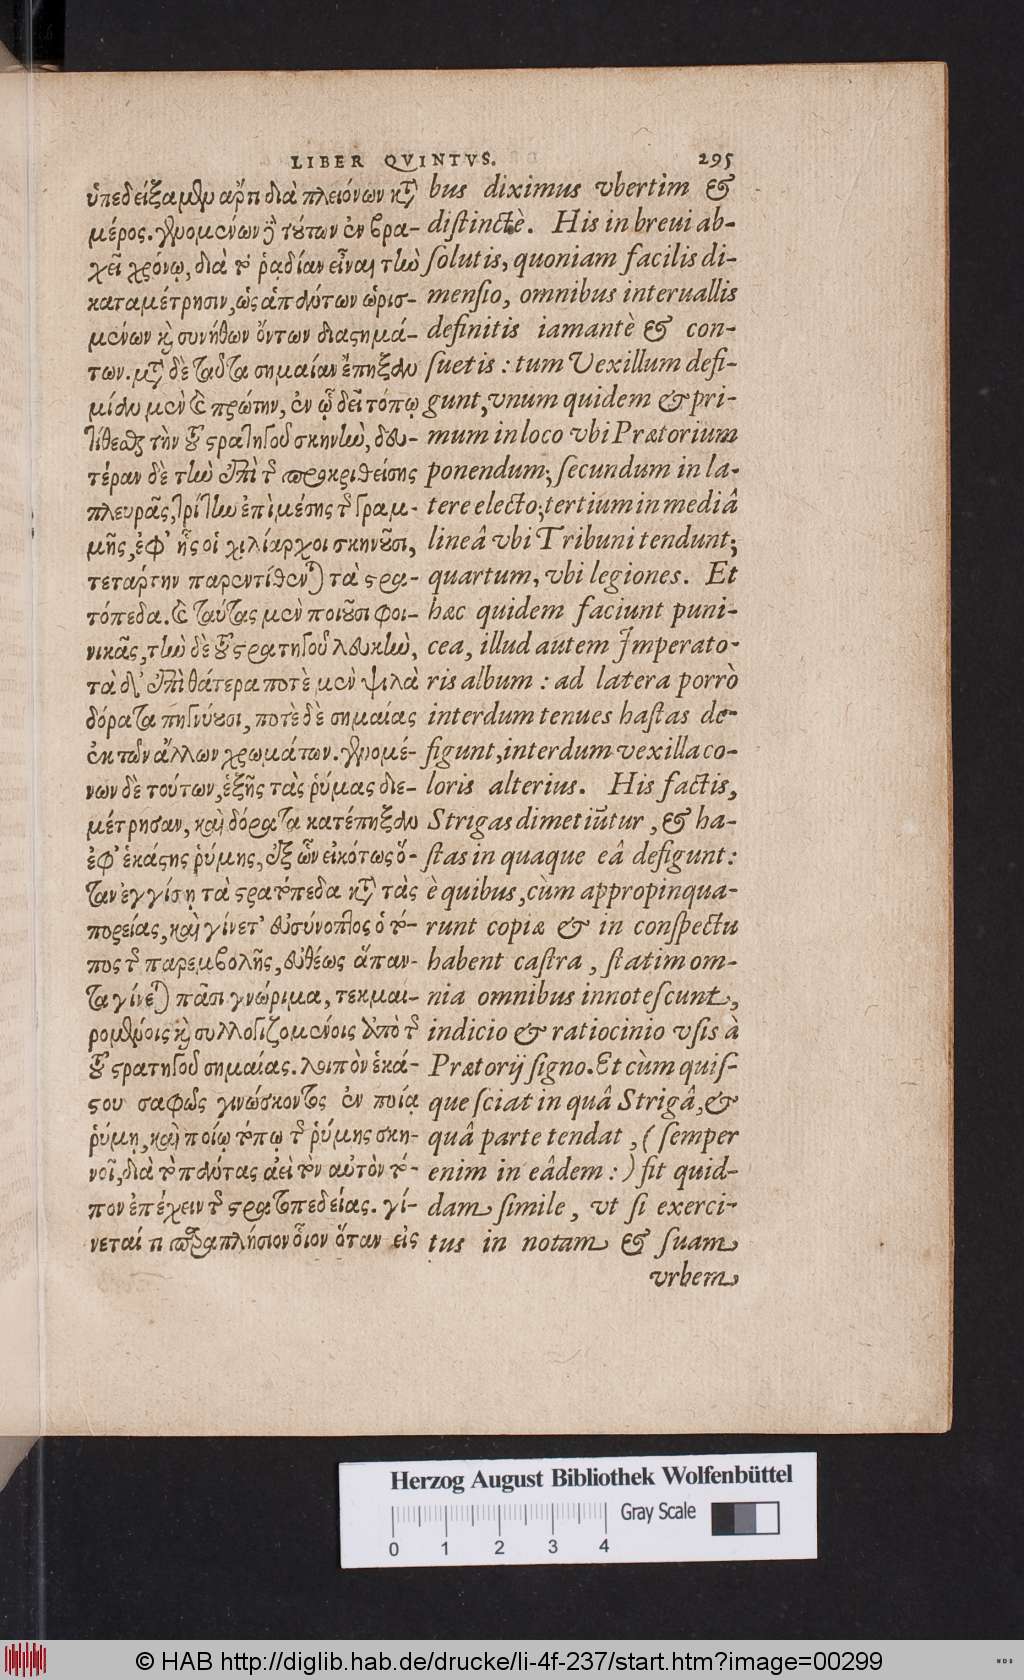 LIBER QVINTVS. 295
ὑπεδείξαμϑμ ἄρτι διὰ πλειόνων κτ̀
μέρος. γϑυομϑύων ϳ̀ τȣ́των ἐν βρα-
χεῖ χρόνῳ, διὰ τὸ ῥᾳδίαν εἶναι τὴν
καταμέτρησιν, ὡς ἁπάντων ὡρισ-
μένων κὶ συνήθων ὄντων διαςημά-
των. μτ̀ δὲ ταῦτα σημαίαν ἔπηξαν
μίαν μὲν κὶ πρώτην, ἐν ᾧ δεῖ τόπῳ
τίθεσθαι τὴν τοῦ ςρατηγοῦ σκηνὴν, δευ-
τέραν δὲ τὴν ἐπὶ τῆς προκριθείσης
πλευρᾶς, τρίτην ἐπὶ μέσης τῆς γραμ-
μῆς, ἐφ᾽ ἧς οἱ χιλίαρχοι σκηνȣ͂σι,
τετάρτην παρεντίθενται τὰ ςρα-
τόπεδα. κὶ ταύτας μὲν ποιȣ͂σι φοι-
νικᾶς, τὴν δὲ τοῦ ςρατηγοῦ λευκὴν,
τὰ δ᾽ ἐπὶ θάτερα ποτὲ μὲν ψιλὰ
δόρατα πηγνύȣσι, ποτὲ δὲ σημαίας
ἐκ τῶν ἄλλων χρωμάτων. γενομέ-
νων δὲ τούτων, ἑξῆς τὰς ῥύμας διε-
μέτρησαν, καὶ δόρατα κατέπηξαν
ἐφ᾽ ἑκάςης ῥύμης, ἐξ ὧν εἰκότως ὅ-
ταν ἐγγίσῃ τὰ ςρατόπεδα κτ̀ τὰς
πορείας, καὶ γίνετ᾽ εὐσύνοπτος ὁ τό-
πος τῆς παρεμβολῆς, εὐθέως ἅπαν-
τα γίνεται πᾶσι γνώριμα, τεκμαι-
ρομένοις κὶ συλλογιζομένοις ἀπὸ τῆς
τοῦ ςρατηγοῦ σημαίας. λοιπὸν ἑκά-
ςου σαφῶς γινώσκοντος ἐν ποίᾳ
ῥύμῃ, καὶ ποίῳ τόπῳ τῆς ῥύμης σκη-
νοῖ, διὰ τὸ πάντας ἀεὶ τὸν αὐτὸν τό-
πον ἐπέχειν τῆς ςρατοπεδείας. γί-
νεταί τι παραπλήσιον οἷον ὅταν εἰς
bus diximus vbertim &
distinctè. His in breui ab-
solutis, quoniam facilis di-
mensio, omnibus interuallis
definitis iamantè & con-
suetis : tum Vexillum defi-
gunt, vnum quidem & pri-
mum in loco vbi Prætorium
ponendum; secundum in la-
tere electo; tertium in mediâ
lineâ vbi Tribuni tendunt;
quartum, vbi legiones. Et
hæc quidem faciunt puni-
cea, illud autem Imperato-
ris album : ad latera porrò
interdum tenues hastas de-
figunt, interdum vexilla co-
loris alterius. His factis,
Strigas dimetiūtur, & ha-
stas in quaque eâ defigunt:
è quibus, cùm appropinqua-
runt copiæ & in conspectu
habent castra, statim om-
nia omnibus innotescunt,
indicio & ratiocinio vsis à
Prætorij signo. Et cùm quis-
que sciat in quâ Strigâ, &
quâ parte tendat, ( semper
enim in eâdem : ) fit quid-
dam simile, vt si exerci-
tus in notam & suam
vrbem
Herzog August Bibliothek Wolfenbüttel
Gray Scale
0 1 2 3 4
© HAB http://diglib.hab.de/drucke/li-4f-237/start.htm?image=00299